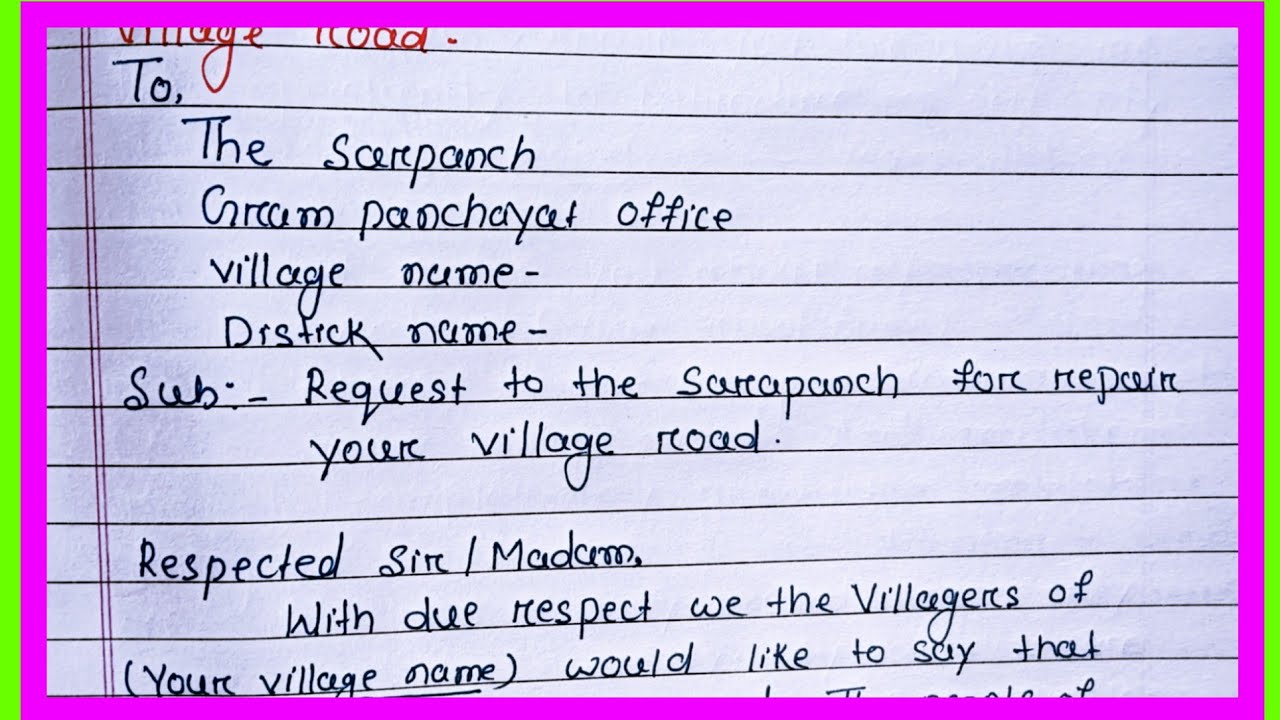 Village Road.
To,
The Sarpanch
Gram panchayat office
Village name-
Distick name-
Sub:- Request to the Sarapanch for repair
your village road.
Respected Sir/Madam,
With due respect we the Villagers of
(Your village name) would like to say that
The people of